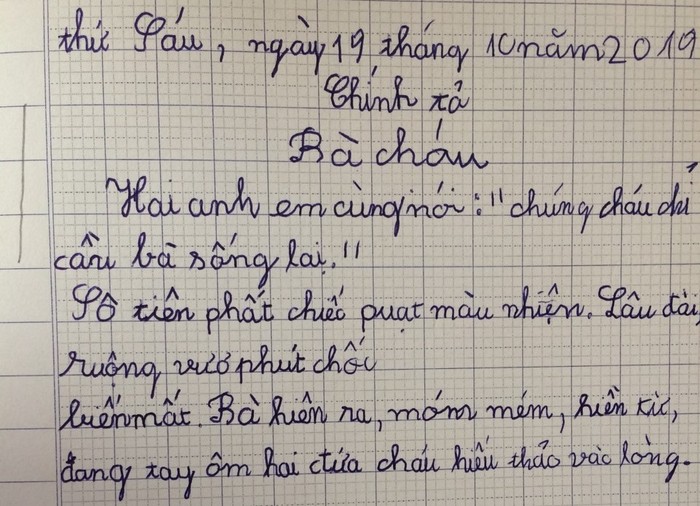 thứ Sáu, ngày 19 tháng 10 năm 2019
Chính tả
Bà cháu
Hai anh em cùng nói: "chúng cháu chỉ
cần bà sống lai."
Sô tiên phất chiếc puạt màu nhiện. Lâu đài,
ruộng vướ phút chốc
biến mất. Bà hiên ra, móm mém, hiền từ,
đang tay ôm hai đứa cháu hiếu thảo vào lòng.